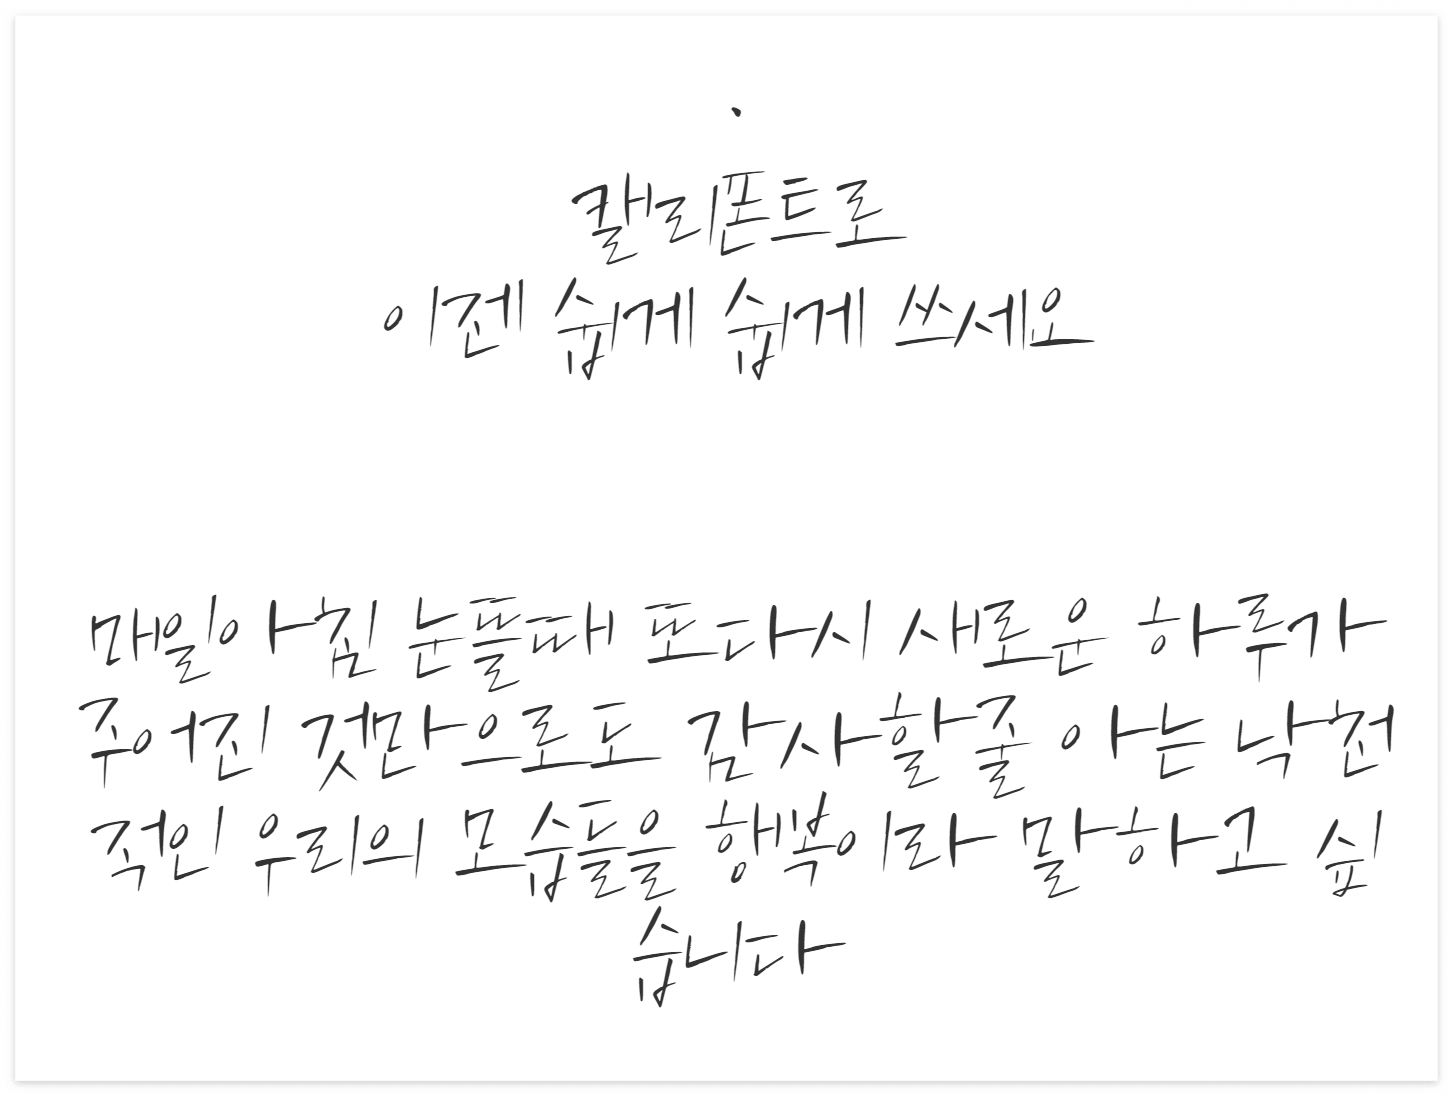 .
캘리폰트로
이젠 쉽게 쉽게 쓰세요
매일아침 눈뜰때 또다시 새로운 하루가
주어진 것만으로도 감사할줄 아는 낙천
적인 우리의 모습들을 행복이라 말하고 싶
습니다